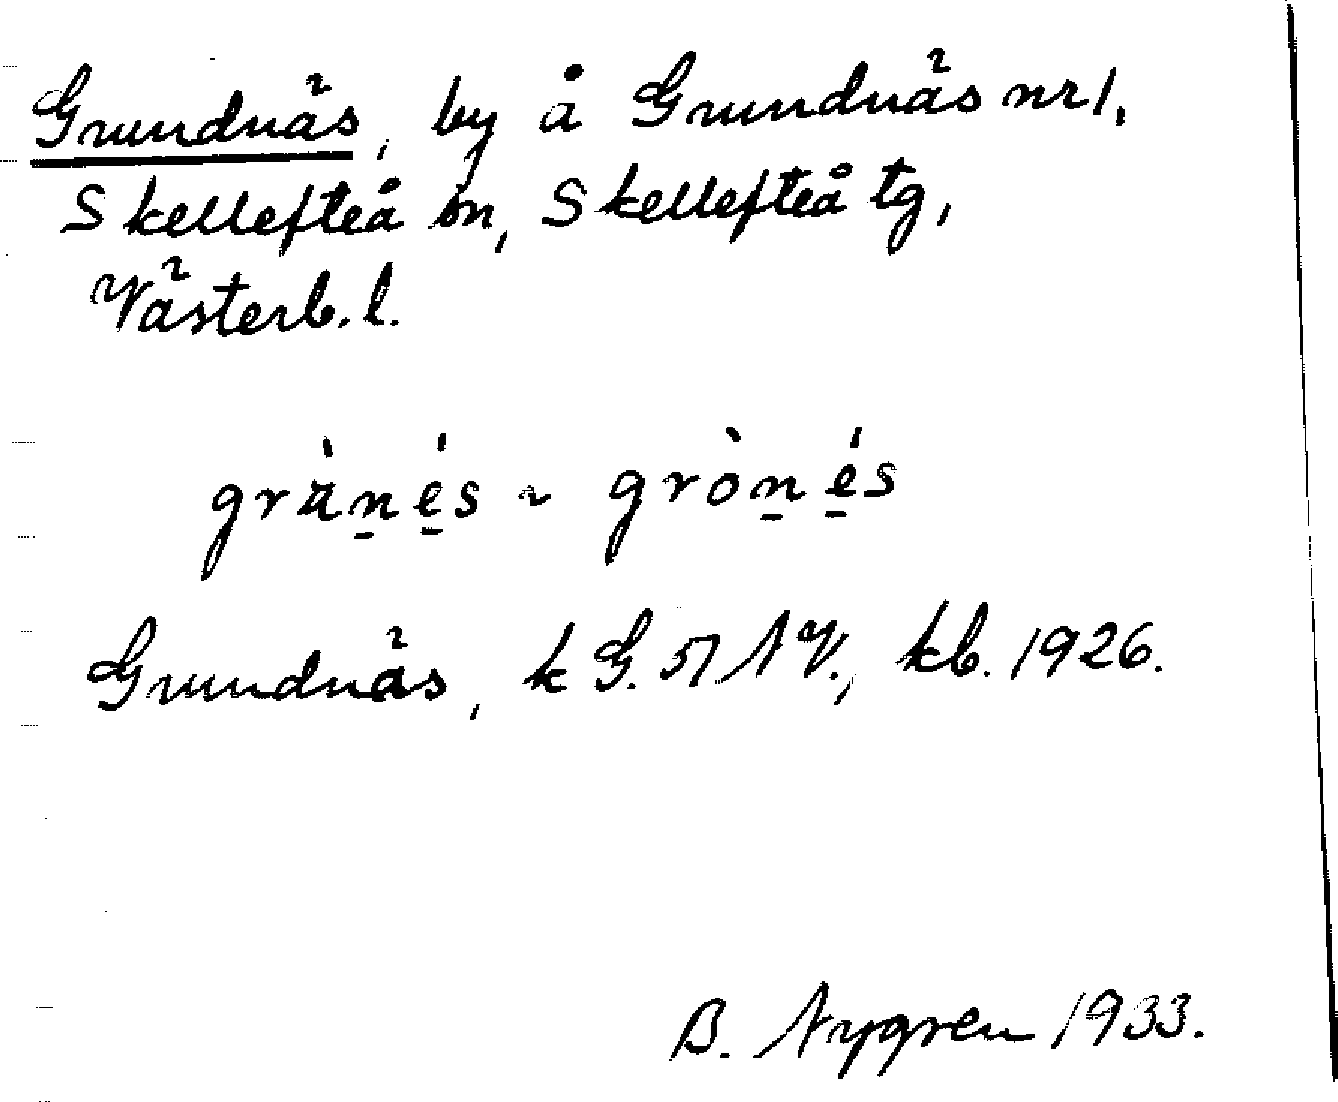 Grundnäs, by å Grundnäs nr 1,
Skellefteå sn, Skellefteå tg,
Västerb. l.
grànés ~ grònés
Grundnäs, k G. 51 NV., kb. 1926.
B. Nygren 1933.